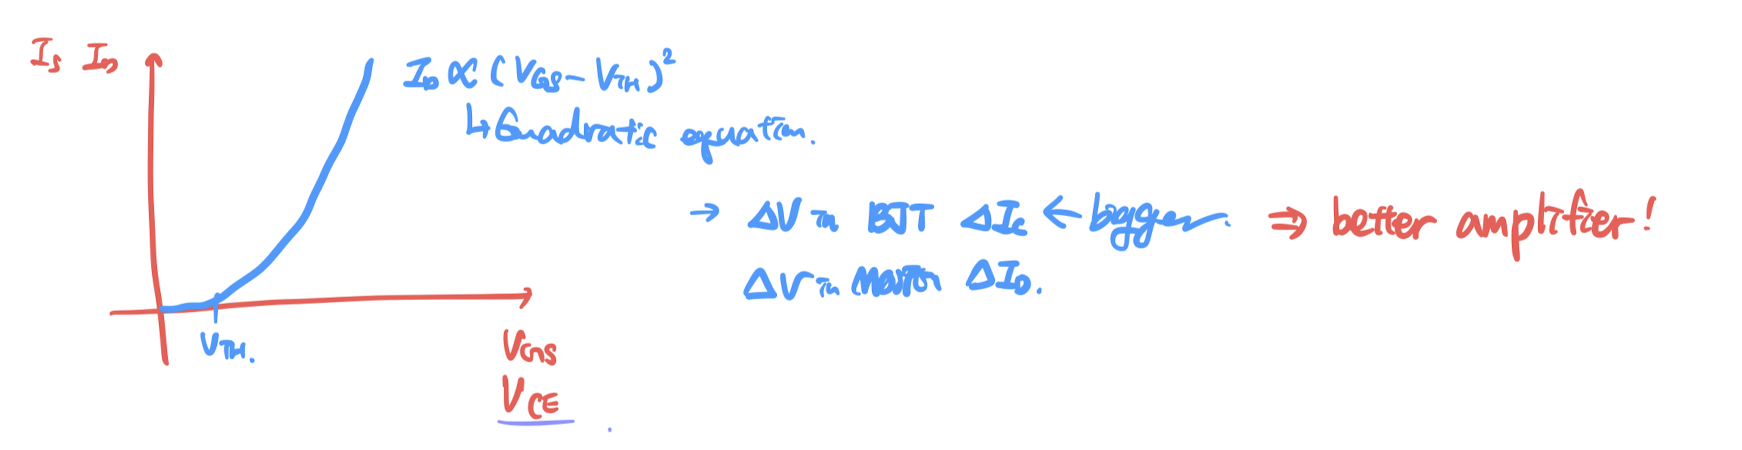 I_S I_D
I_D ∝ (V_GS - V_TH)²
↳ Quadratic equation.
→ ΔV in BJT ΔI_C ← bigger. ⇒ better amplifier!
ΔV in MOSFET ΔI_D.
V_TH.
V_GS
V_CE